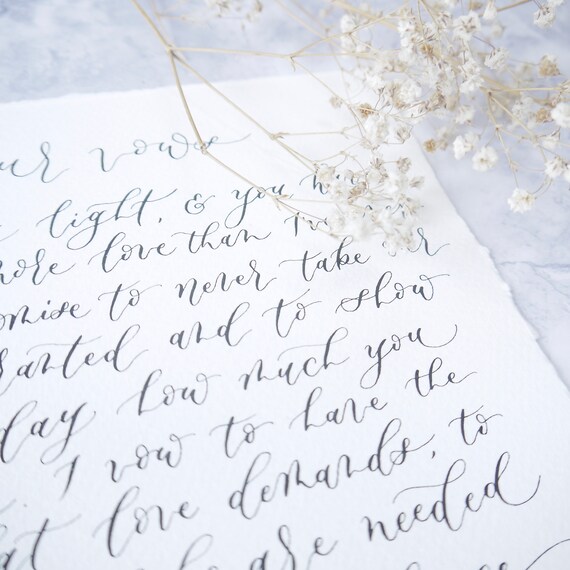 ur vows
light, & you
more love than
omise to never take
anted and to show
day how much you
I vow to have the
at love demands, to
are needed